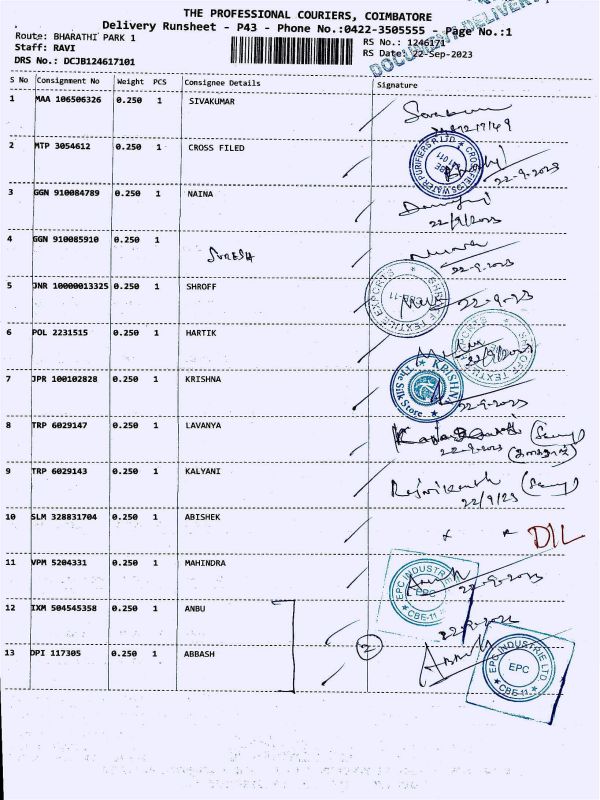 THE PROFESSIONAL COURIERS, COIMBATORE
Delivery Runsheet - P43 - Phone No.:0422-3505555 - Page No.:1
Route: BHARATHI PARK 1
RS No.: 1246171
Staff: RAVI
RS Date: 22-Sep-2023
DRS No.: DCJB124617101
S No Consignment No Weight PCS Consignee Details Signature
1 MAA 106506326 0.250 1 SIVAKUMAR
2 MTP 3054612 0.250 1 CROSS FILED
22-9-2023
3 GGN 910084789 0.250 1 NAINA
22/9/2023
4 GGN 910085910 0.250 1
SURESH
22-9-2023
5 JNR 10000013325 0.250 1 SHROFF
SHROFF TEXTILE EXPORTS
22-9-2023
6 POL 2231515 0.250 1 HARTIK
SHROFF TEXTILE EXPORTS
22/9/2023
7 JPR 100102828 0.250 1 KRISHNA
KRISHNA
The Silk Store
22-9-2023
8 TRP 6029147 0.250 1 LAVANYA
22-9-2023
9 TRP 6029143 0.250 1 KALYANI
Rajnikanth
22/9/23
10 SLM 328831704 0.250 1 ABISHEK
DIL
11 VPM 5204331 0.250 1 MAHINDRA
EPC INDUSTRIE LTD
EPC
CBE-11
22-9-2023
12 IXM 504545358 0.250 1 ANBU
13 DPI 117305 0.250 1 ABBASH
2
EPC INDUSTRIE LTD
EPC
CBE-11